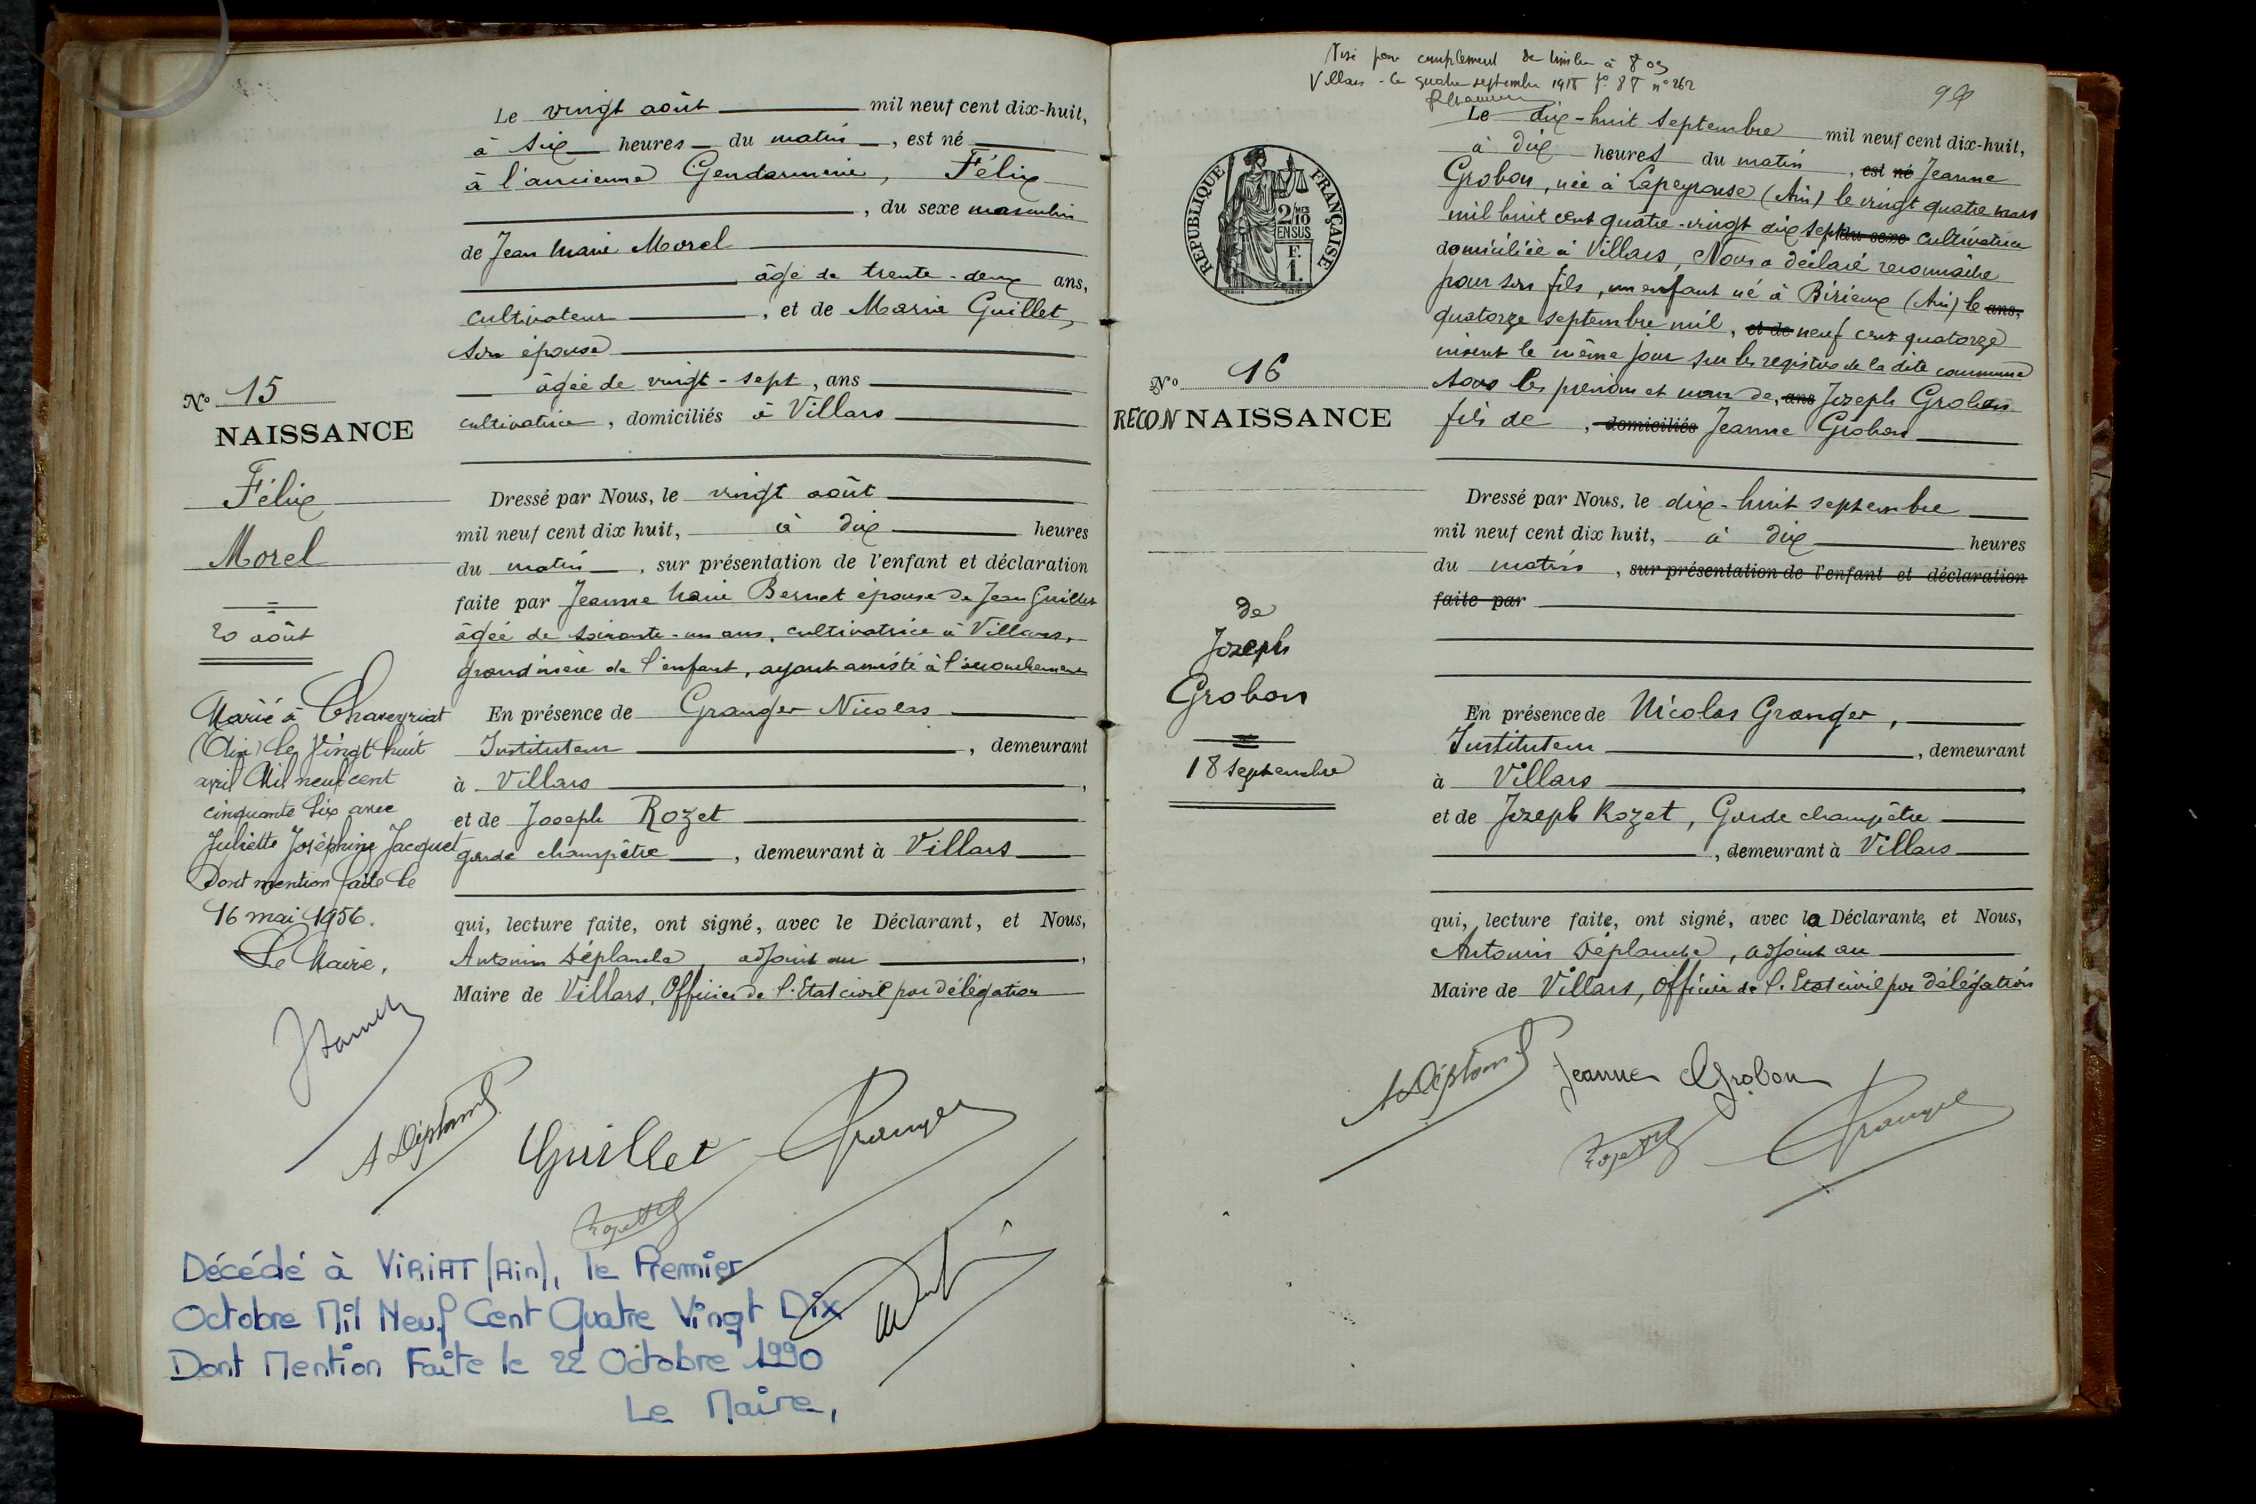 Le vingt août mil neuf cent dix-huit,
à six heures du matin, est né
à l'ancienne Gendarmerie, Félix
, du sexe masculin
de Jean Marie Morel
âgé de trente-deux ans,
cultivateur, et de Marie Guillet,
son épouse
âgée de vingt-sept, ans
cultivatrice, domiciliés à Villars
No 15
NAISSANCE
Félix
Morel
20 août
Dressé par Nous, le vingt août
mil neuf cent dix huit, à dix heures
du matin, sur présentation de l'enfant et déclaration
faite par Jeanne Marie Bernet épouse de Jean Guillet
âgée de soixante-un ans, cultivatrice à Villars,
grand'mère de l'enfant, ayant assisté à l'accouchement
En présence de Granger Nicolas
Instituteur, demeurant
à Villars,
et de Joseph Rozet
garde champêtre, demeurant à Villars
qui, lecture faite, ont signé, avec le Déclarant, et Nous,
Antonin Déplanche, adjoint au,
Maire de Villars, Officier de l'Etat civil par délégation
Marié à Chaveyriat
(Ain) le vingt huit
avril Mil neuf cent
cinquante six avec
Juliette Joséphine Jacquet
Dont mention faite le
16 mai 1956.
Le Maire,
Guillet
Granger
Décédé à VIRIAT (Ain), le Premier
Octobre Mil Neuf Cent Quatre Vingt Dix
Dont Mention Faite le 22 Octobre 1990
Le Maire,
Visé pour complement de timbre à
Villars - le quatre septembre 1918 n° 262
Le dix-huit septembre mil neuf cent dix-huit,
à dix heures du matin, est né Jeanne
Grobon, née à Lapeyrouse (Ain) le vingt quatre mars
mil huit cent quatre-vingt dix sept du sexe cultivatrice
domiciliée à Villars, Nous a déclaré reconnaître
pour son fils, un enfant né à Birieux (Ain) le ans,
quatorze septembre mil, et de neuf cent quatorze
inscrit le même jour sur les registres de la dite commune
sous les prénom et nom de, ans Joseph Grobon
fils de, domiciliés Jeanne Grobon
RÉPUBLIQUE FRANÇAISE
2/10 MES
EN SUS
F.
1.
No 16
RECONNAISSANCE
de
Joseph
Grobon
18 septembre
Dressé par Nous, le dix-huit septembre
mil neuf cent dix huit, à dix heures
du matin, sur présentation de l'enfant et déclaration
faite par
En présence de Nicolas Granger,
Instituteur, demeurant
à Villars,
et de Joseph Rozet, Garde champêtre
, demeurant à Villars
qui, lecture faite, ont signé, avec la Déclarante, et Nous,
Antonin Déplanche, adjoint au
Maire de Villars, Officier de l'Etat civil par délégation
Jeanne Grobon
Granger